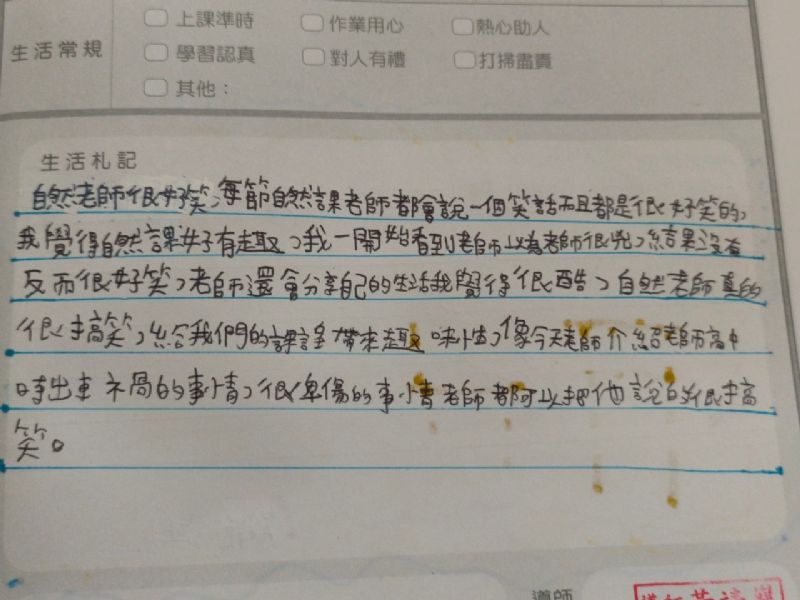 生活常規
上課準時 作業用心 熱心助人
學習認真 對人有禮 打掃盡責
其他：
生活札記
自然老師很好笑，每節自然課老師都會說一個笑話而且都是很好笑的，
我覺得自然課好有趣，我一開始看到老師以為老師很兇，結果沒有
反而很好笑，老師還會分享自己的生活我覺得很酷，自然老師真的
很搞笑，給我們的課堂帶來趣味性，像今天老師介紹老師高中
時出車禍的事情，很悲傷的事情老師都可以把他說的很搞
笑。
導師